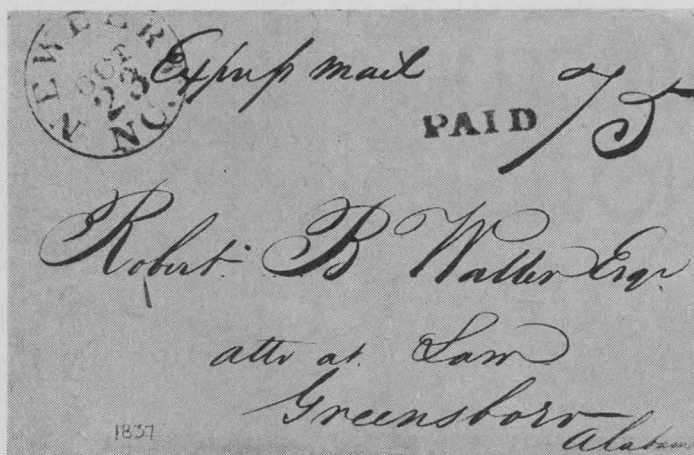 NEWBERN
OCT
23
NC.
Express mail
PAID 75
Robert B Waller Esqr
atto at. Law
Greensboro
Alabama
1837